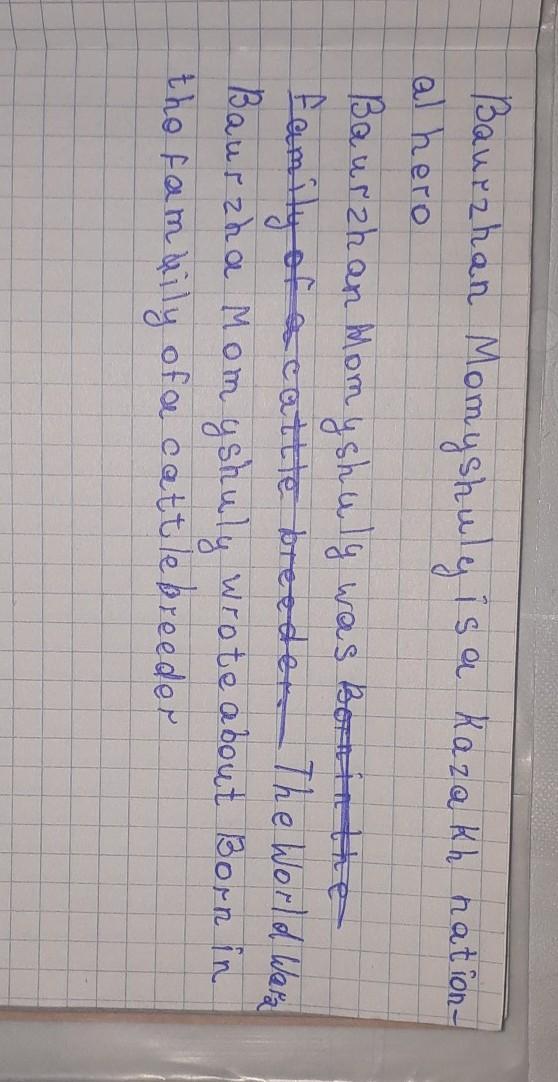 Baurzhan Momyshuly is a Kazakh nation-
al hero
Baurzhan Momyshuly was Born in the
Family of a cattle breeder. The World War 2
Baurzha Momyshuly wrote about Born in
the family of a cattle breeder